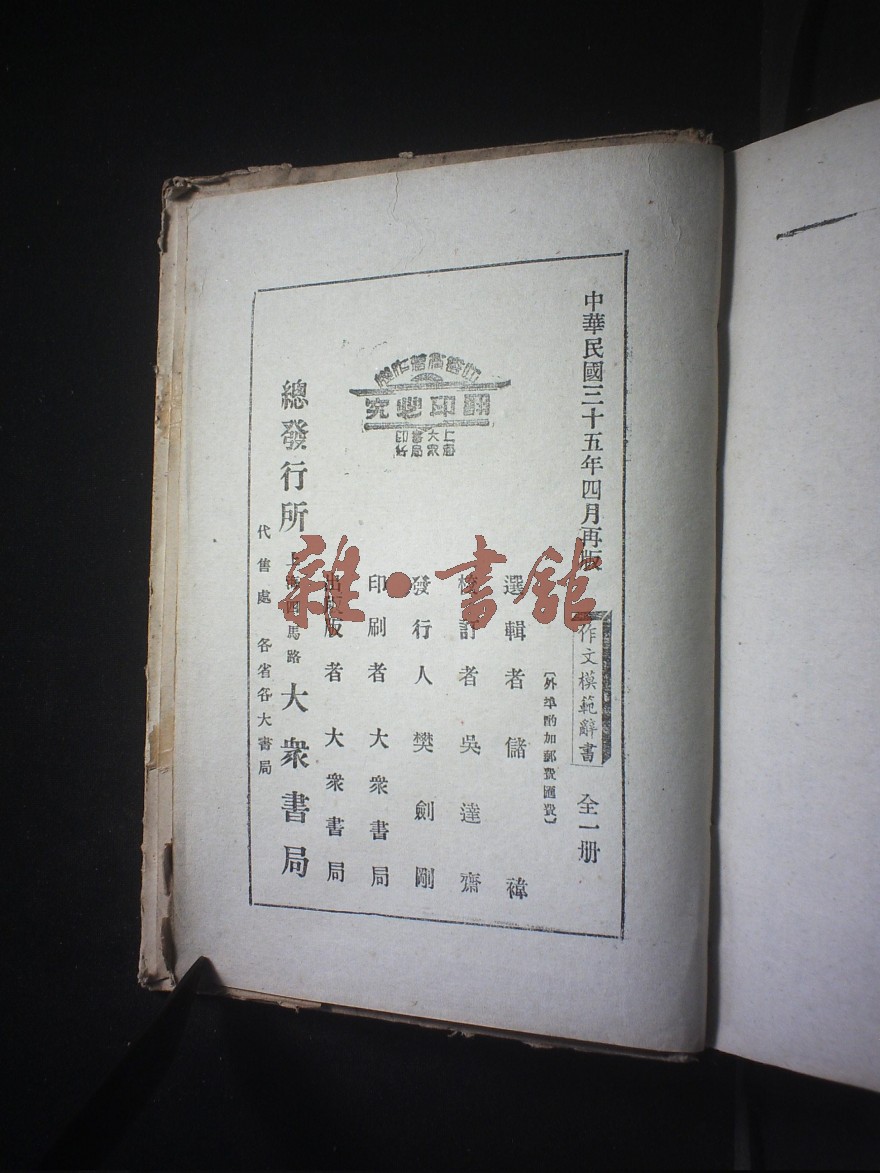 中華民國三十五年四月再版
作文模範辭書
全一册
〔外埠酌加郵費匯費〕
選輯者 儲禕
校訂者 吳達齋
發行人 樊劍剛
印刷者 大衆書局
出版者 大衆書局
總發行所 上海四馬路 大衆書局
代售處 各省各大書局
有著作權
翻印必究
上海
大衆
書局
印行
雜·書館